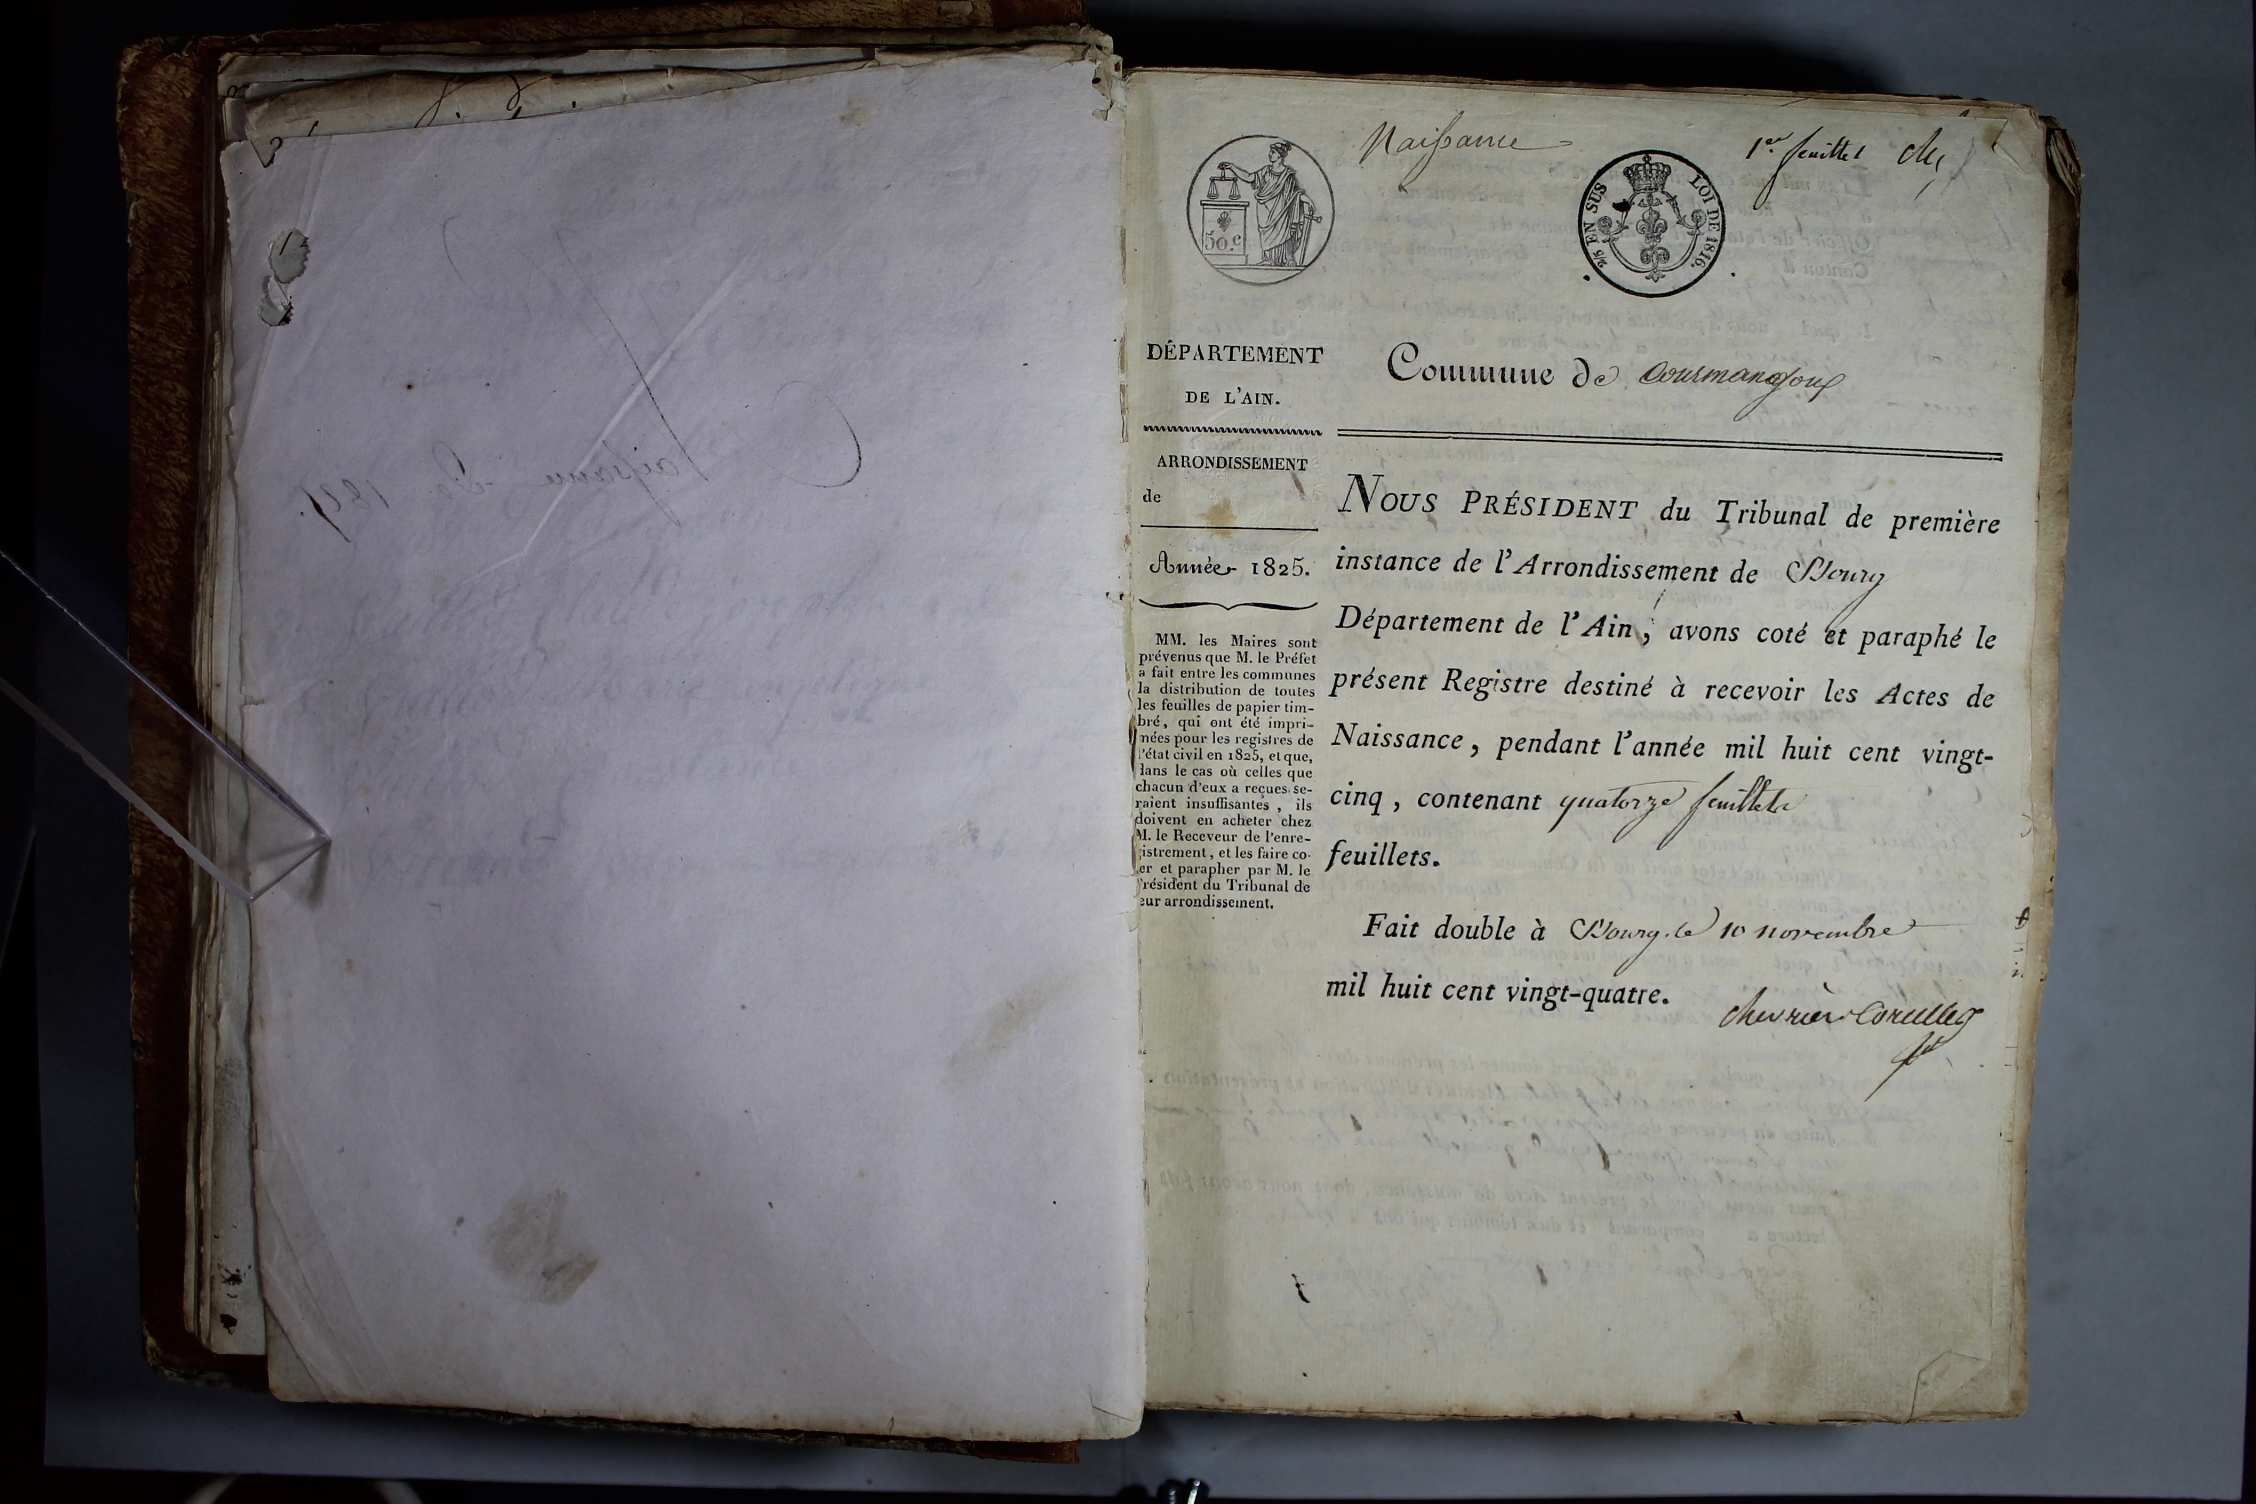 Naissance
1er feuillet
50.c
2/5 EN SUS
LOI DE 1816.
DÉPARTEMENT
DE L'AIN.
ARRONDISSEMENT
de
Année 1825.
MM. les Maires sont
prévenus que M. le Préfet
a fait entre les communes
la distribution de toutes
les feuilles de papier tim-
bré, qui ont été impri-
mées pour les registres de
l'état civil en 1825, et que,
dans le cas où celles que
chacun d'eux a reçues se-
raient insuffisantes, ils
doivent en acheter chez
M. le Receveur de l'enre-
gistrement, et les faire co-
ter et parapher par M. le
Président du Tribunal de
leur arrondissement.
Commune de Courmangoux
NOUS PRÉSIDENT du Tribunal de première
instance de l'Arrondissement de Bourg
Département de l'Ain, avons coté et paraphé le
présent Registre destiné à recevoir les Actes de
Naissance, pendant l'année mil huit cent vingt-
cinq, contenant quatorze feuillets
feuillets.
Fait double à Bourg. le 10 novembre
mil huit cent vingt-quatre.